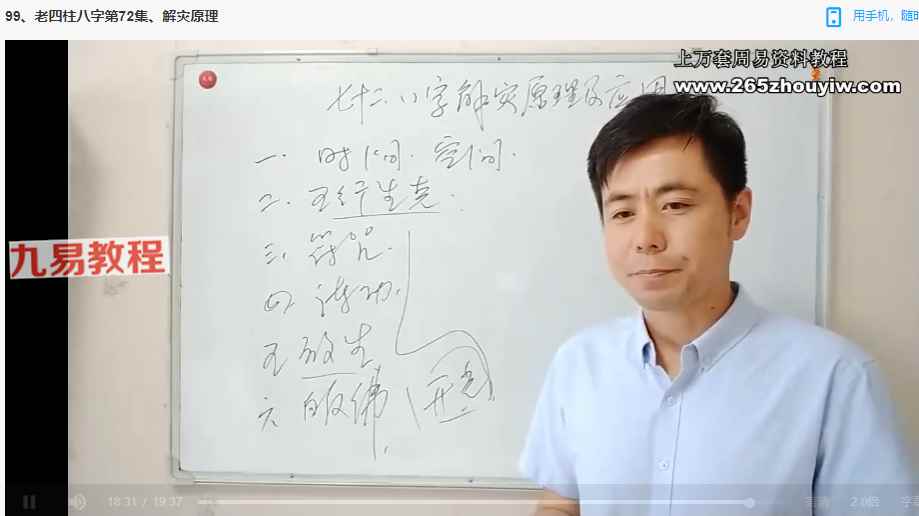 99、老四柱八字第72集、解灾原理
用手机，随时
上万套周易资料教程
www.265zhouyiw.com
七十二、八字解灾原理及应用
一. 时间. 空间.
二. 五行生克.
九易教程
三. 符咒.
四
五 放生
六 (开光)
18:31 / 19:37
2.0倍
字幕